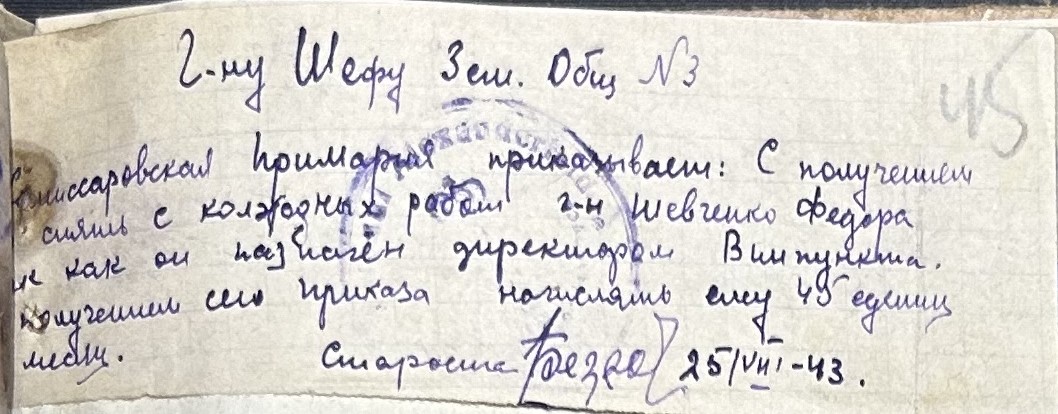 Г-ну Шефу Зем. Общ N 3
45
Комиссаровская Примария приказывает: С получением
снять с колходных работ г-н Шевченко Федора
к как он назначен директором Винпункта.
получением сего приказа начислять ему 45 едениц
месяц.
Староста 25/VIII-43.